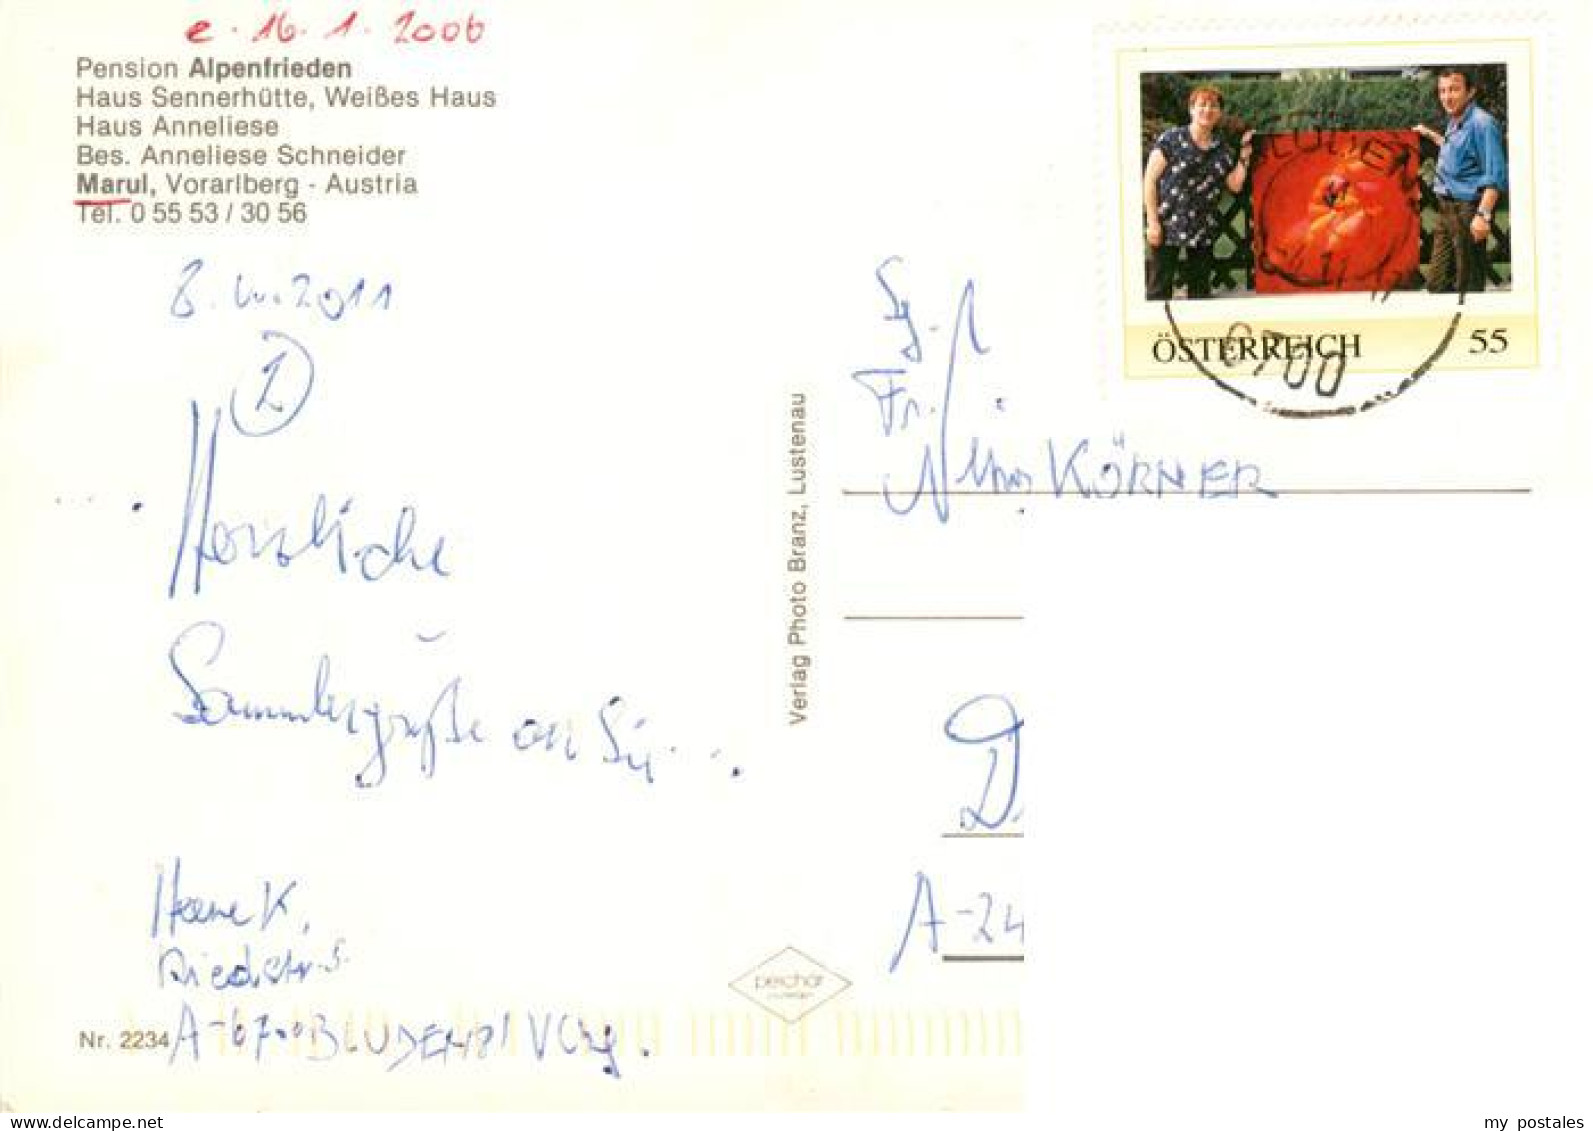 e. 16. 1. 2006
Pension Alpenfrieden
Haus Sennerhütte, Weißes Haus
Haus Anneliese
Bes. Anneliese Schneider
Marul, Vorarlberg - Austria
Tel. 0 55 53 / 30 56
2011
1
Herzliche
Sammlergrüße an Sie...
K.
Riedstr. 5
A-6700 BLUDENZ / Vlbg.
Nr. 2234
Verlag Photo Branz, Lustenau
ÖSTERREICH 55
BLUDENZ
6700
Fr.
KÖRNER
A-24
my postales